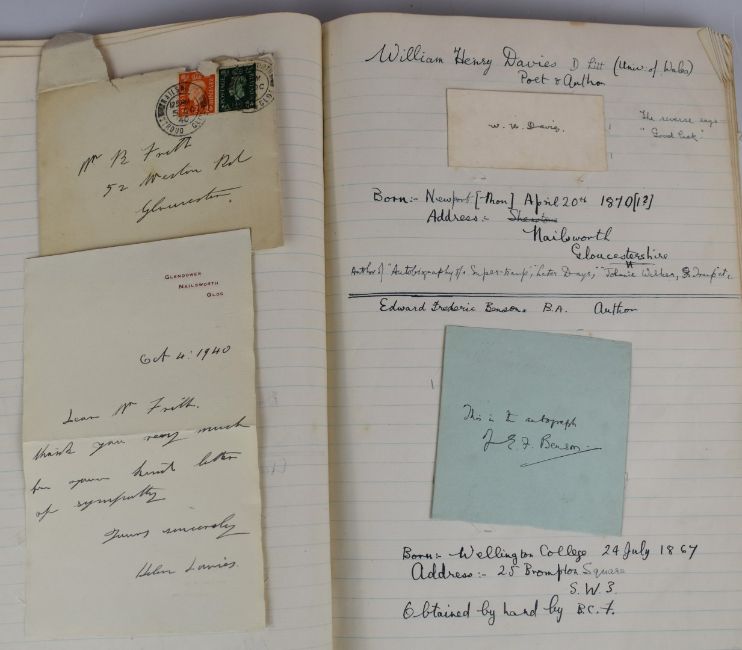 Mr R Frith
52 Weston Rd
Gloucester.
GLENDOWER
NAILSWORTH
GLOS
Oct 4: 1940
Dear Mr Frith.
thank you very much
for your kind letter
of sympathy
Yours sincerely
Helen Davies
William Henry Davies D Litt (Univ. of Wales)
Poet & Author
W. H. Davies.
The reverse says
"Good luck"
Born:- Newport [Mon] April 20th 1870[1?]
Address:-
Nailsworth
Gloucestershire
Author of "Autobiography of a Super-tramp", "Later Days", "Johnny Walker, Tramp" etc
Edward Frederic Benson. B.A. Author
This is the autograph
of E. F. Benson
Born:- Wellington College 24 July 1867
Address:- 25 Brompton Square
S.W.3.
Obtained by hand by B.C.F.